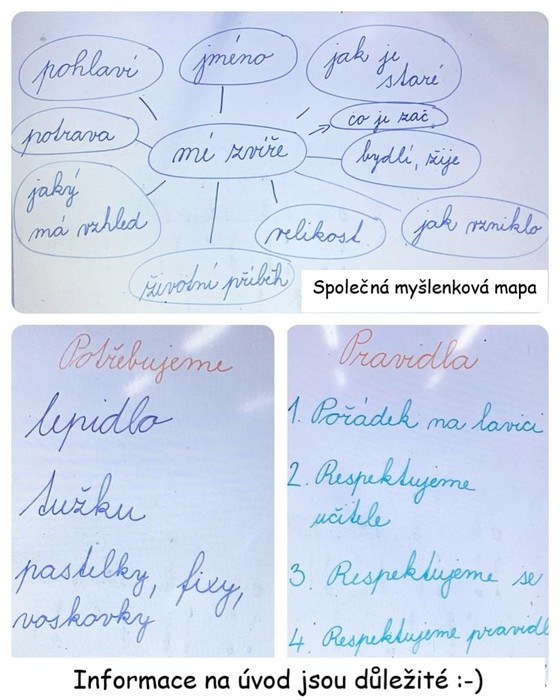 pohlaví
jméno
jak je
staré
co je zač
potrava
mé zvíře
bydlí, žije
jaký
má vzhled
velikost
jak vzniklo
životní příběh
Společná myšlenková mapa
Potřebujeme
lepidlo
tužku
pastelky, fixy,
voskovky
Pravidla
1. Pořádek na lavici
2. Respektujeme
učitele
3. Respektujeme se
4 Respektujeme pravidl
Informace na úvod jsou důležité :-)